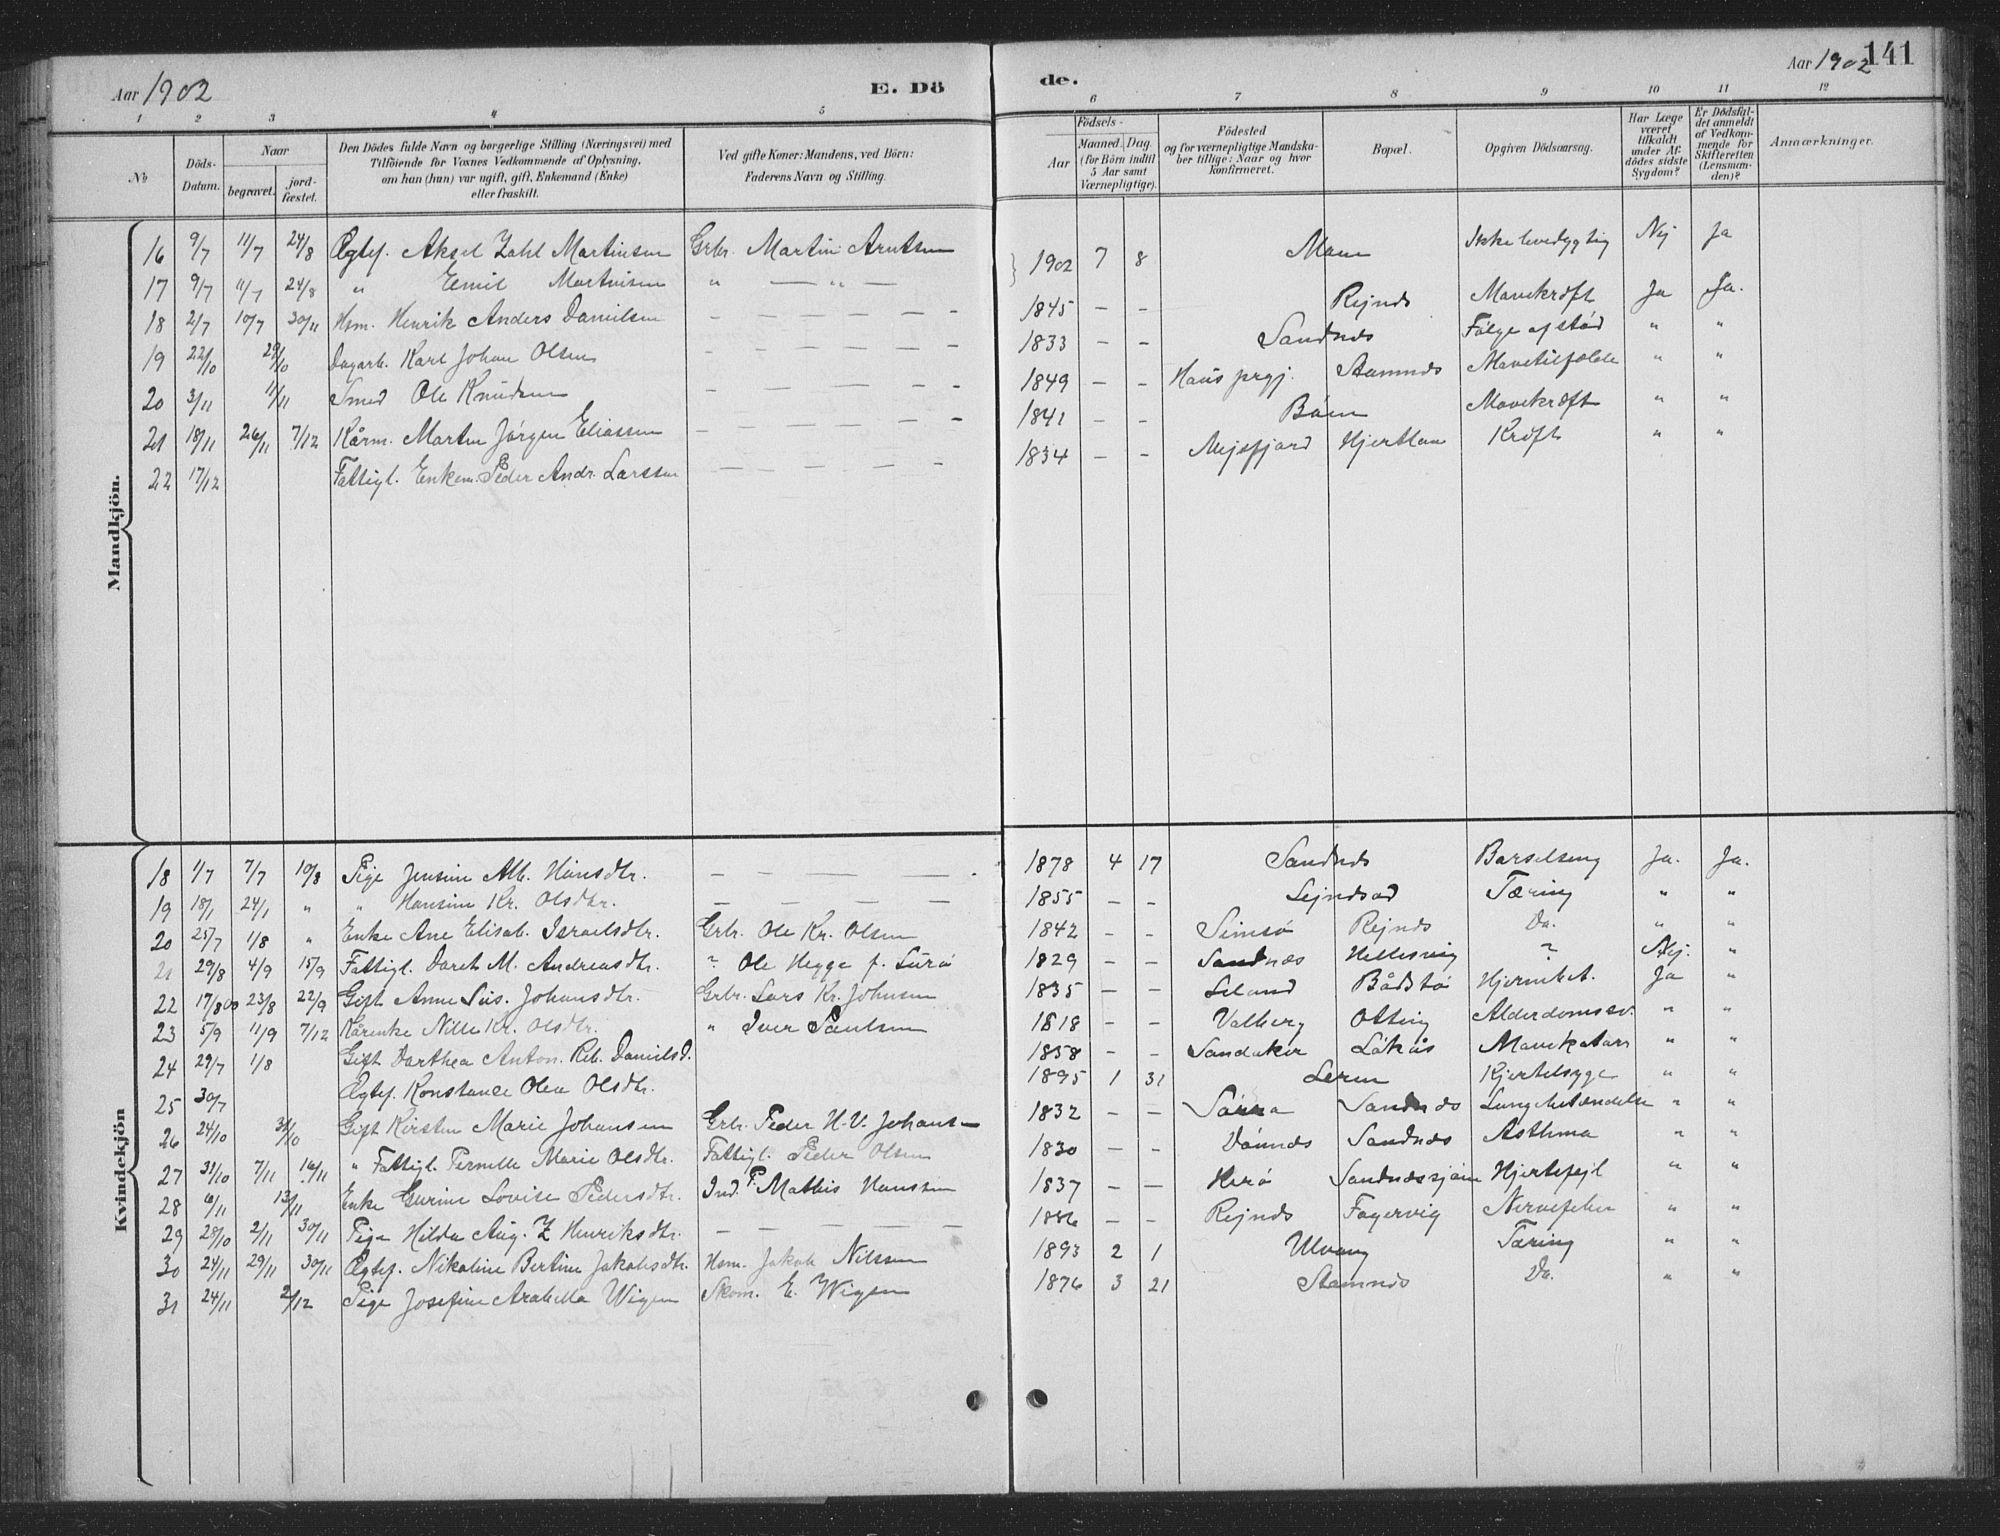 Aar 1902
E. Dö
de.
Aar 1902
141
1 2 3 4 5 6 7 8 9 10 11 12
№
Döds-
Datum.
Naar
begravet.
jord-
fæstet.
Den Dödes fulde Navn og borgerlige Stilling (Næringsvei) med
Tilföiende for Voxnes Vedkommende af Oplysning,
om han (hun) var ugift, gift, Enkemand (Enke)
eller fraskilt.
Ved gifte Koner: Mandens, ved Börn:
Faderens Navn og Stilling.
Födsels-
Aar
Maaned. Dag.
(for Börn indtil
5 Aar samt
Værnepligtige).
Födested
og for værnepligtige Mandska-
ber tillige: Naar og hvor
konfirmeret.
Bopæl.
Opgiven Dödsaarsag.
Har Læge
været
tilkaldt
under Af-
dödes sidste
Sygdom?
Er Dödsfal-
det anmeldt
af Vedkom-
mende for
Skifteretten
(Lensman-
den)?
Anmærkninger.
Mandkjön.
16 9/7 11/7 24/8 Ægtef. Aksel Zahl Martinsen Grbr. Martin Arntsen 1902 7 8 Ikke levedygtig Nej Ja
17 9/7 11/7 24/8 " Emil Martinsen " — " —
18 2/7 10/7 30/11 Hsm. Henrik Anders Danielsen — — — — — — 1845 — — Rejnæs Mavekræft Ja Ja.
19 22/10 29/10 Dagarb. Karl Johan Olsen — — — — — — 1833 — — Sandnæs Følge af stød " "
20 3/11 11/11 Smed Ole Knudsen — — — — — 1849 — — Haus prgj. Stamnæs Mavetilfælde " "
21 18/11 26/11 7/12 Kårm. Martin Jørgen Eliassen — — — — — — 1841 — — Mavekræft " "
22 17/12 Fattigl. Enkem. Peder Andr. Larssen — — — — — — 1834 — — Mejefjord Kræft " "
Kvindekjön
18 1/7 7/7 10/8 Pige Jensine Alb. Hansdtr. — — — — — 1878 4 17 Sandnæs Barselseng Ja. Ja.
19 18/1 24/1 " " Hansine Kr. Olsdtr. — — — — 1855 — — Tæring " "
20 25/7 1/8 " Enke Ane Elisab. Israelsdtr. Grbr. Ole Kr. Olsen 1842 — — Rejnæs Do. " "
21 29/8 4/9 15/9 Fattigl. Doret M. Andreasdtr. ? Ole Hegge f. Lurø 1829 — — Sandnæs Hellesvig ? Nej. "
22 17/8 00 23/8 22/9 Gift Anne Sus. Johansdtr. Grbr. Lars Kr. Johnsen 1835 — — Leland Bådstø Hjernebet. Ja "
23 5/9 11/9 7/12 Kårenke Nille Kr. Olsdtr. " Iver Paulsen 1818 — — Valberg Otting Alderdomssv. " "
24 29/7 1/8 Gift Darthea Anton. Reb. Danielsd. 1858 — — Sandaker Løkås Mavekatarr " "
25 30/7 Ægtef. Konstance Olea Olsdtr. 1895 1 31 Leren Kjertelsyge " "
26 24/10 31/10 Gift Kirsten Marie Johansen Grbr. Peder H. V. Johansen 1832 — — Sandnæs Lungebetændelse " "
27 31/10 7/11 16/11 " Fattigl. Pernille Marie Olsdtr. Fattigl. Peder Olsen 1830 — — Dønnæs Sandnæs Asthma " "
28 6/11 13/11 Enke Gurine Lovise Pedersdtr. Ind. P. Mathis Hanssen 1837 — — Herø Sandnæssjøen Hjertefejl " "
29 28/10 2/11 30/11 Pige Hilda Aug. Z Henriksdtr. — — — — — 1886 — — Rejnæs Fagervig Nervefeber " "
30 24/11 29/11 30/11 Ægtef. Nikoline Bertine Jakobsdtr. Hsm. Jakob Nilssen 1893 2 1 Ulvang Tæring " "
31 24/11 2/12 Pige Josefine Arabella Wigen Skom. E. Wigen 1876 3 21 Stamnæs Do. " "